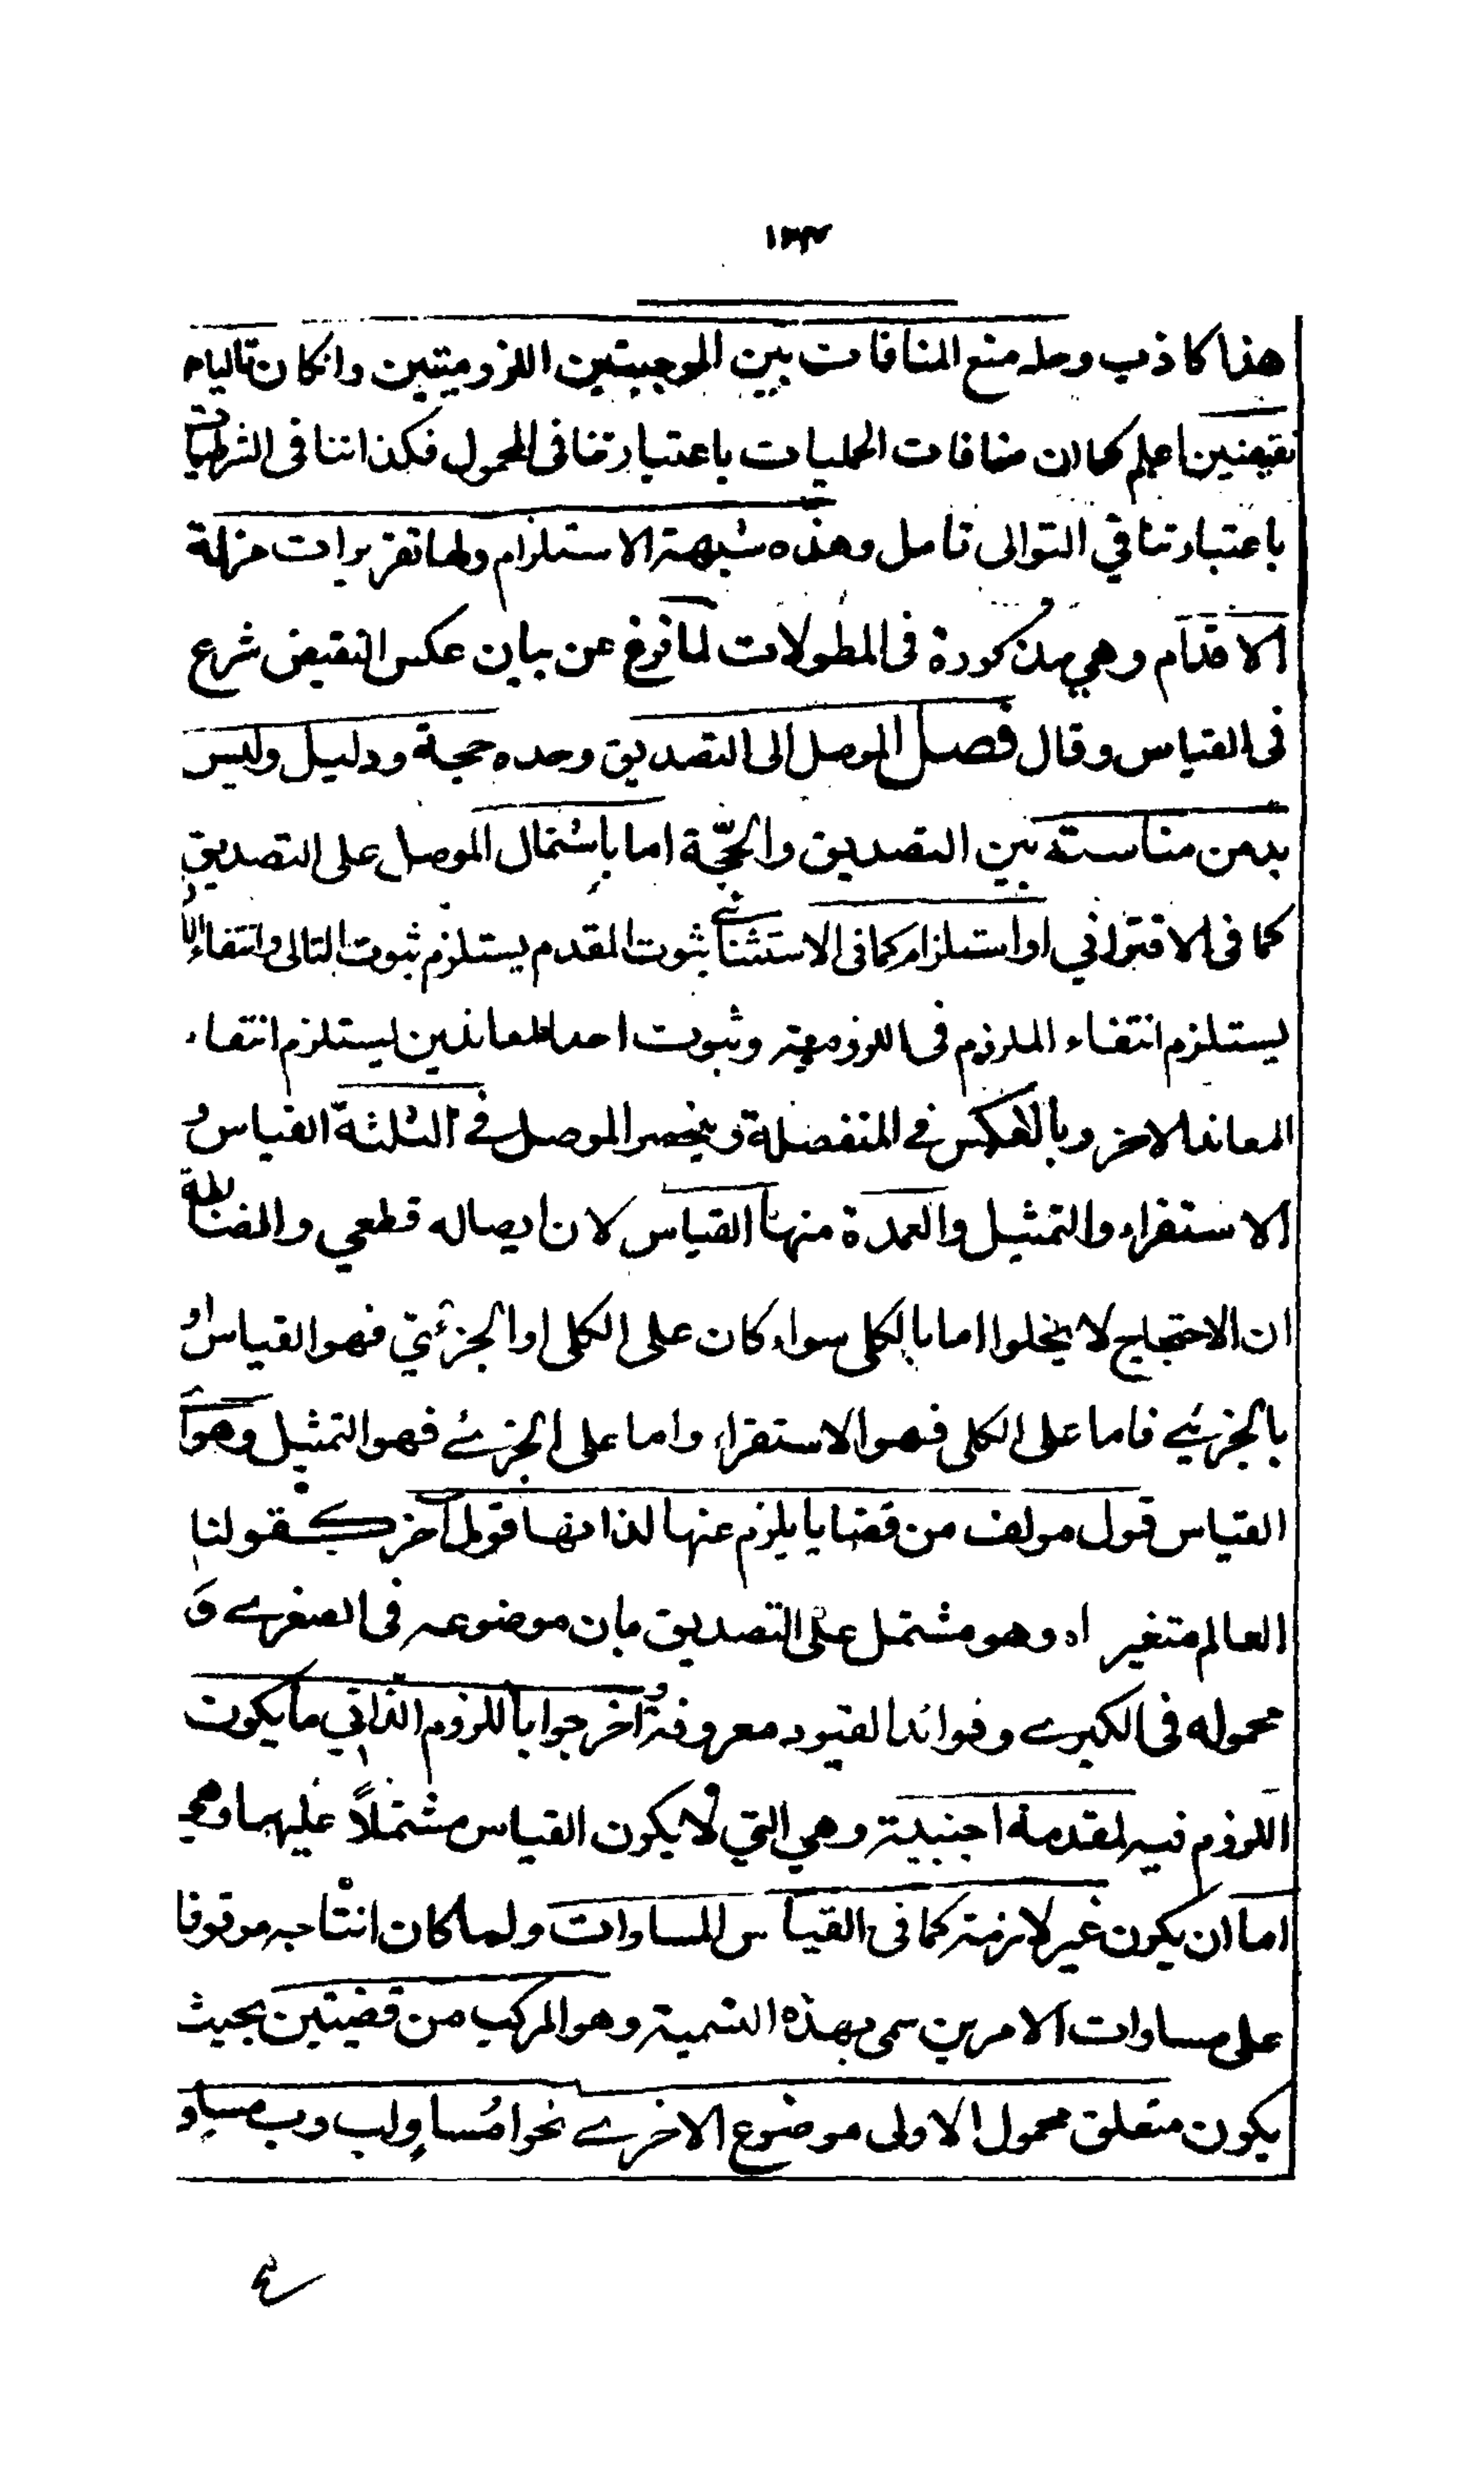 هذا كاذب وحله منع المنافات بين الموجبتين اللزوميتين وانكان تالياهما
نقيضين اعلم كما ان منافات الحمليات باعتبار تنافى المحمول فكذا تنافى الشرطيات
باعتبار تنافي التوالى تامل وهذه شبهة الاستلزام ولها تقريرات مزلة
الاقدام وهي مذكورة فى المطولات لما فرغ عن بيان عكس النقيض شرع
فى القياس وقال فصل الموصل الى التصديق وحده حجة ودليل وليس
بد من مناسبته بين التصديق والحجّة اما باشتمال الموصل على التصديق
كما فى الاقتراني او استلزام كما فى الاستثنائي ثبوت المقدم يستلزم ثبوت التالى وانتفاء
يستلزم انتفاء الملزوم فى اللزومية وثبوت احد المعاندين يستلزم انتفاء
المعاند الاخر وبالعكس في المنفصلة وينحصر الموصل في الثلثة القياس و
الاستقراء والتمثيل والعمدة منها القياس لان ايصاله قطعي والضابطة
ان الاحتجاج لا يخلوا اما بالكلى سواء كان على الكلى او الجزئي فهو القياس او
بالجزئي فاما على الكلى فهو الاستقراء واما على الجزئے فهو التمثيل وهو اے
القياس قول مولف من قضايا يلزم عنها لذاتها قول آخر كقولنا
العالم متغير اه وهو مشتمل على التصديق بان موضوعه فى الصغرے و
محموله فى الكبرے وفوائد القيود معروفة و اخرجوا باللزوم الذاتي ما يكون
اللزوم فيه لمقدمة اجنبية وهي التي لا يكون القياس مشتملاً عليها وهي
اما ان يكون غير لازمة كما فى القياس المساوات ولما كان انتاجه موقوفا
على مساوات الامرين سمى بهذه التسمية وهو المركب من قضيتين بحيث
يكون متعلق محمول الاولى موضوع الاخرے نحو ا مُساوٍ لب وب مساوٍ